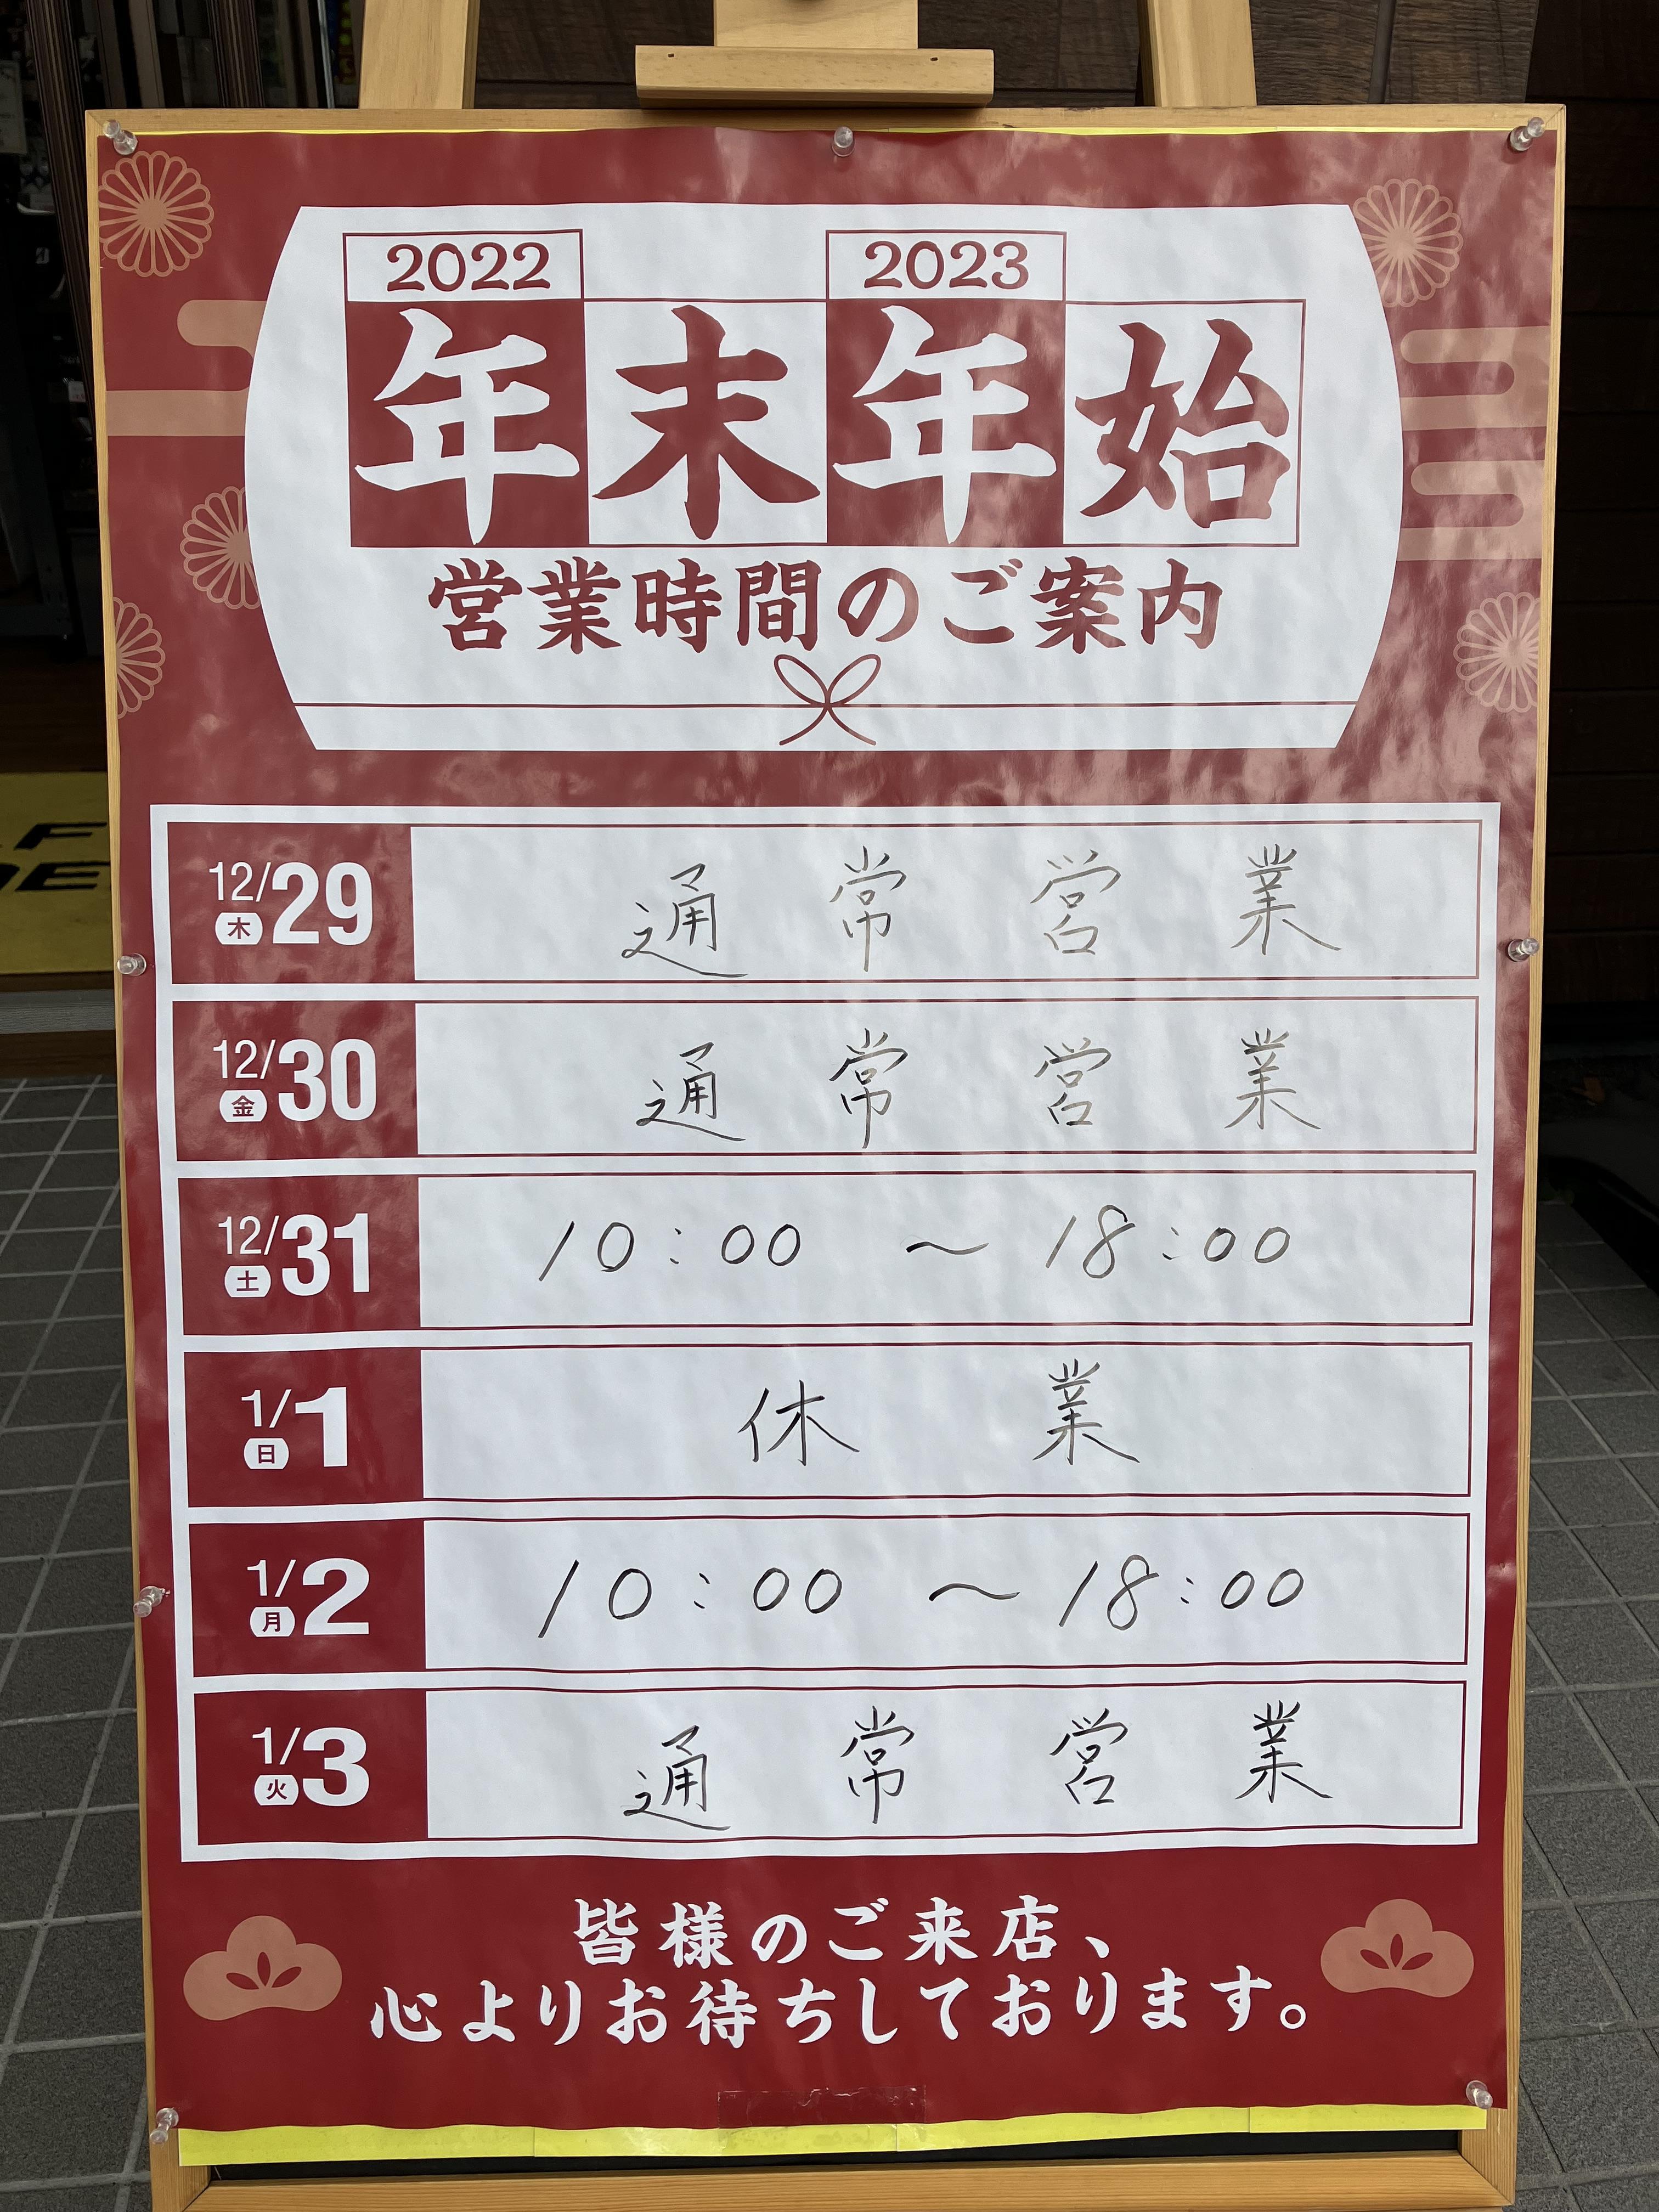 2022 2023
年末年始
営業時間のご案内
12/29 木 通常営業
12/30 金 通常営業
12/31 土 10:00 〜 18:00
1/1 日 休業
1/2 月 10:00 〜 18:00
1/3 火 通常営業
皆様のご来店、
心よりお待ちしております。